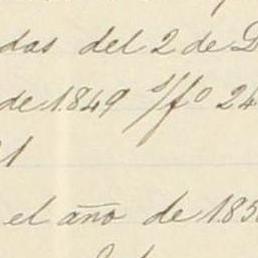 das del 2 de D
de 1849 s/fº 24
21
el año de 185